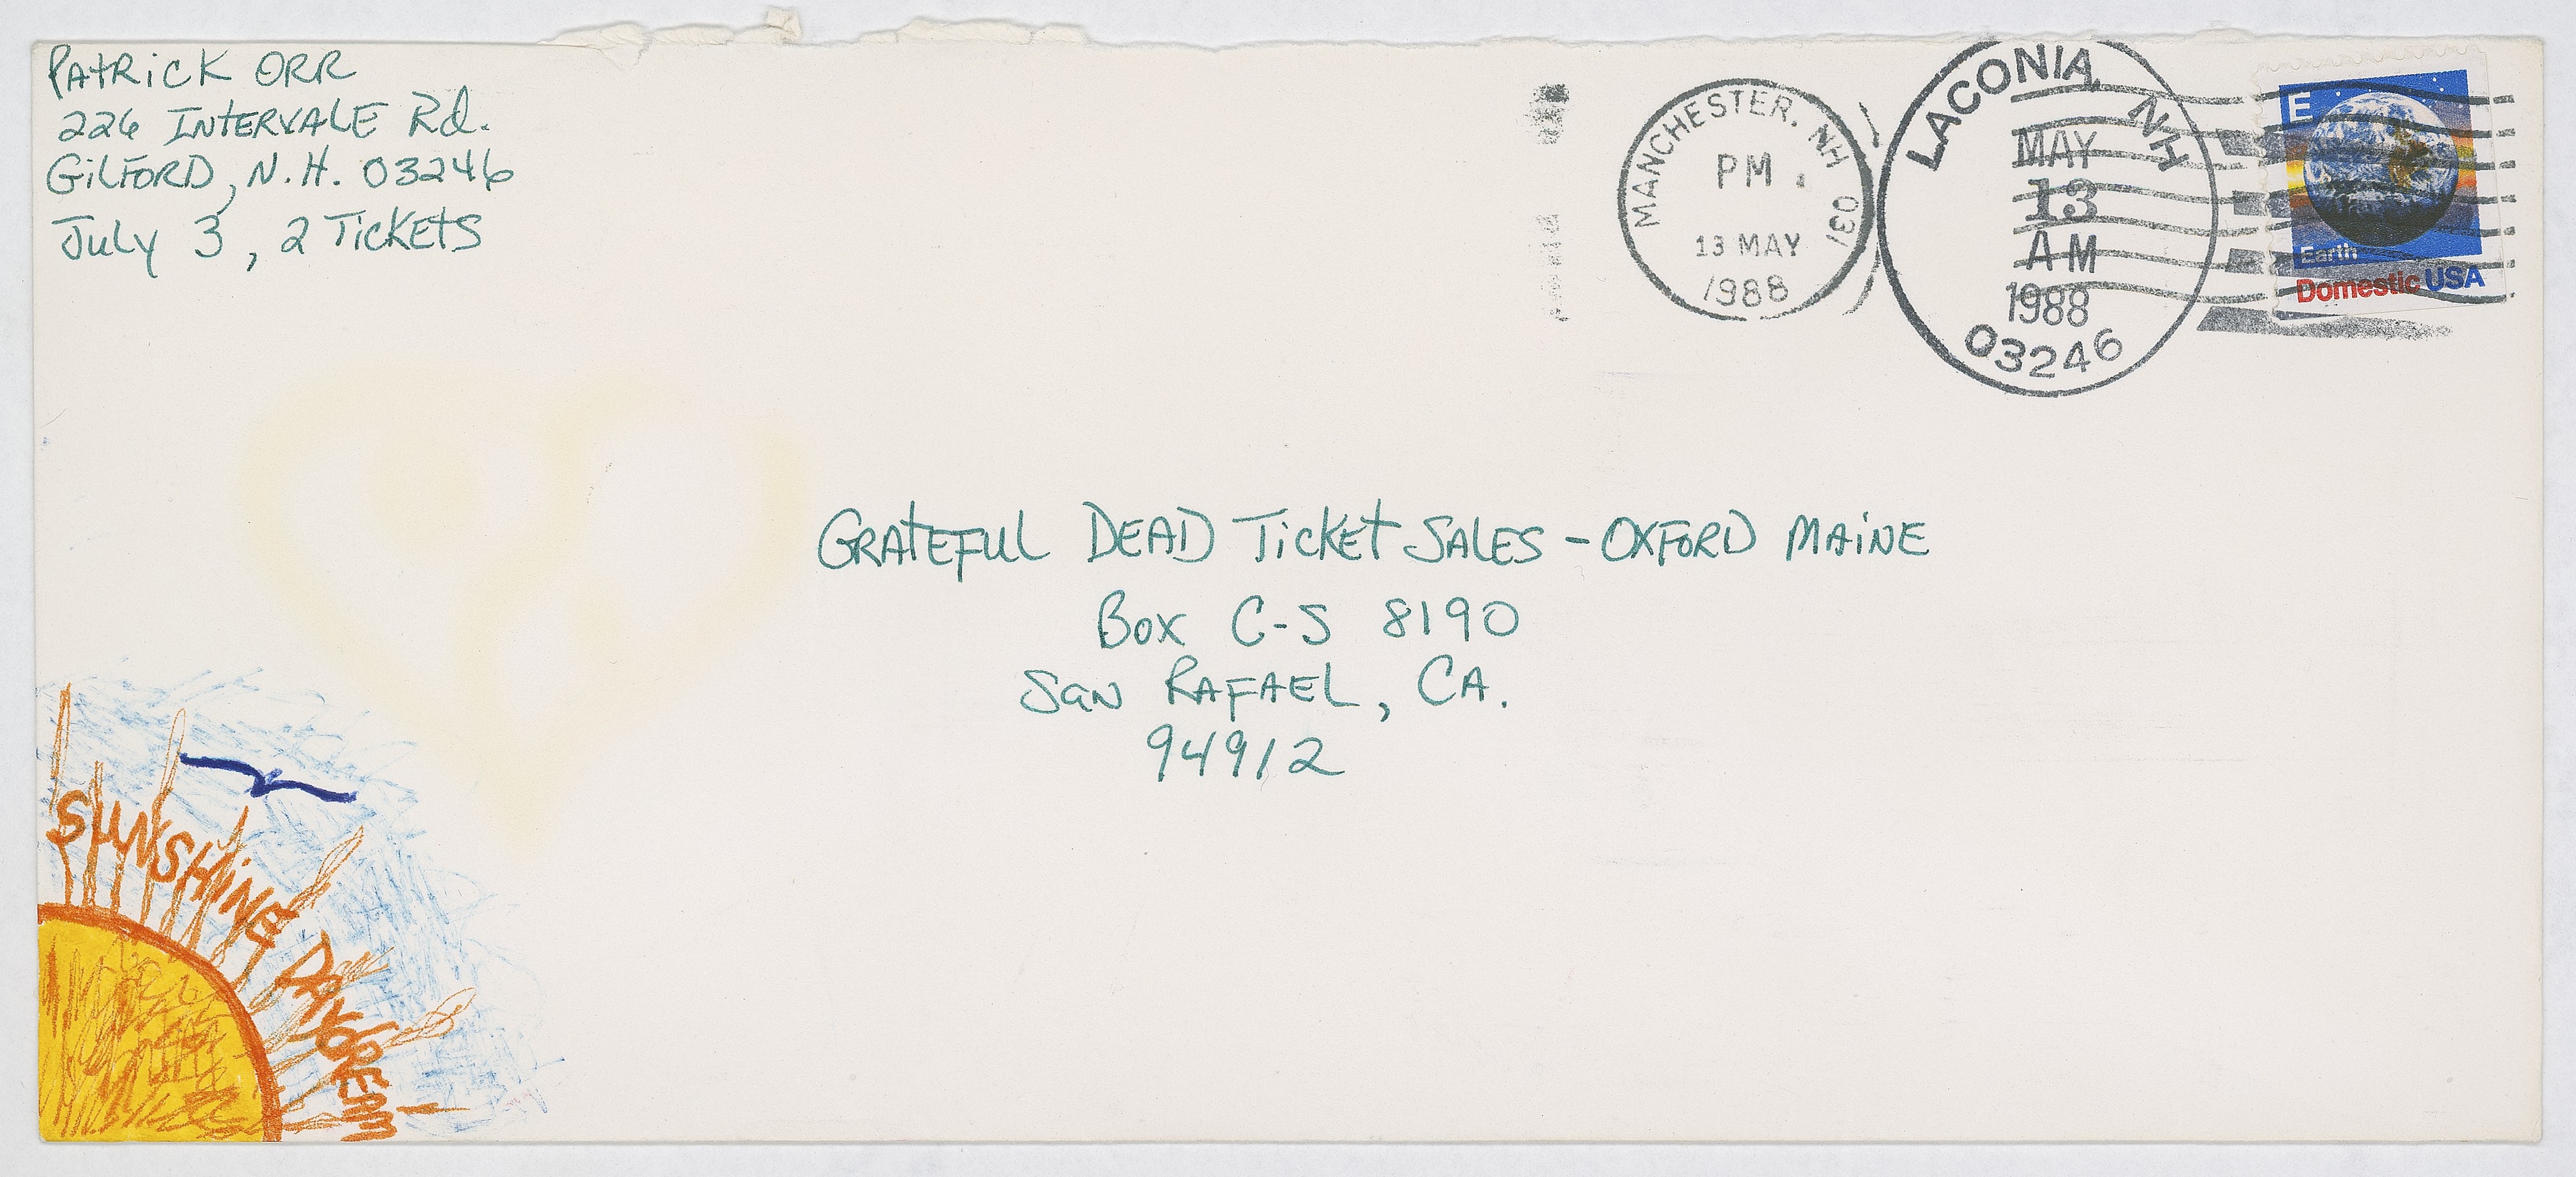 PAtRiCK ORR
226 INtERVALE Rd.
GiLFORD, N.H. 03246
July 3, 2 TicKEtS
MANCHESTER, NH 031
PM
13 MAY
1988
LACONIA, NH
MAY
13
AM
1988
03246
E
Earth
Domestic USA
GRAtEFUL DEAD TicKEt SALES - OXFORD MAiNE
Box C-S 8190
San RAFAEL, CA.
94912
SUNSHiNE DAYDREAM